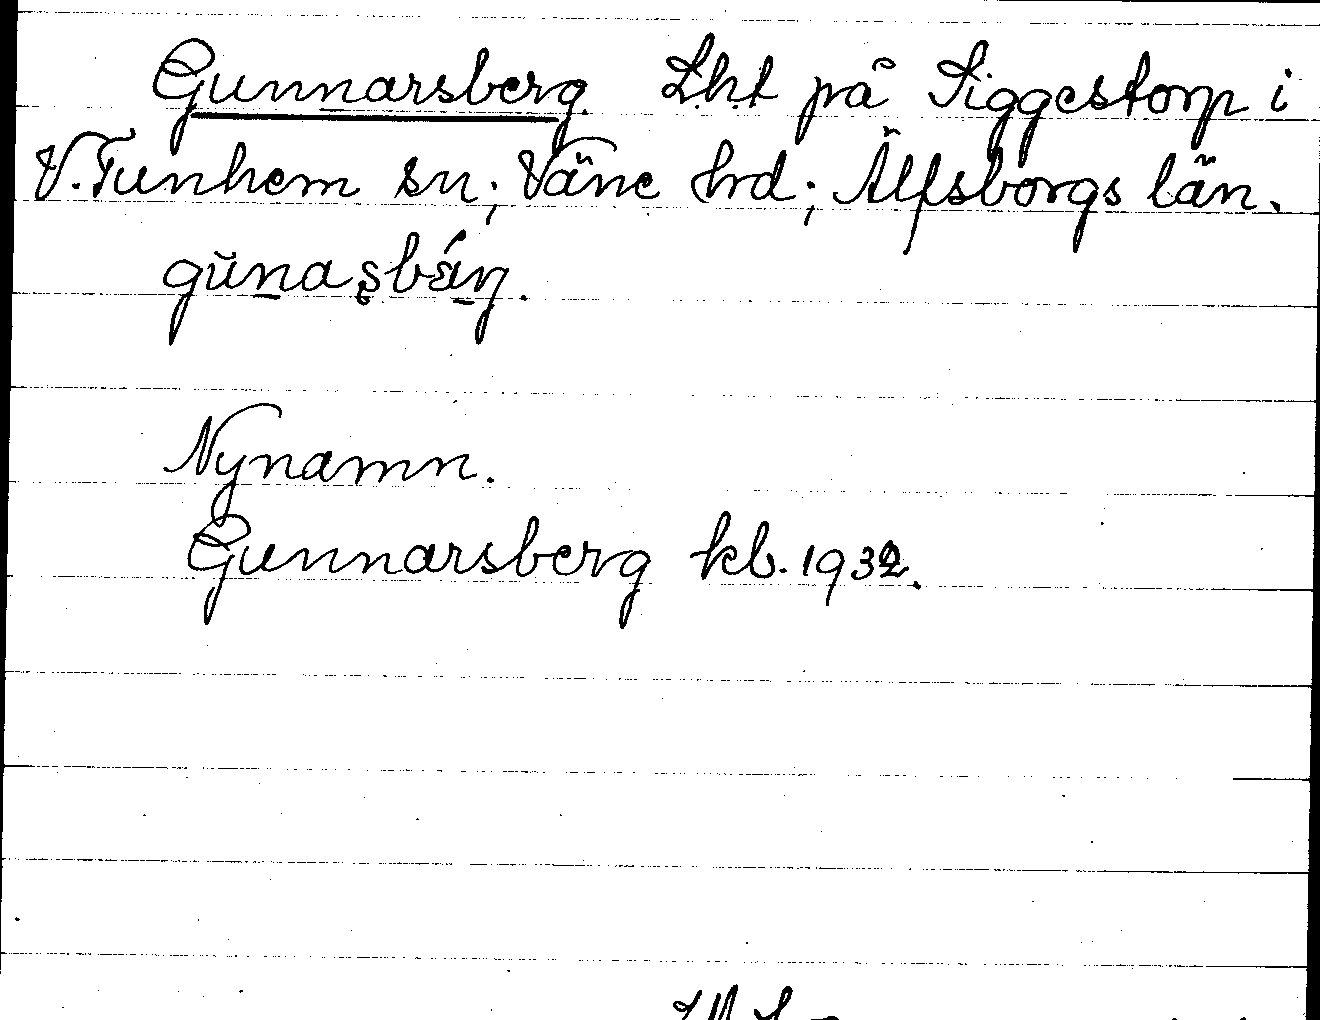 Gunnarsberg Lht på Siggestorp i
V. Tunhem sn; Väne hrd; Älfsborgs län.
Nynamn.
Gunnarsberg kb. 1932.